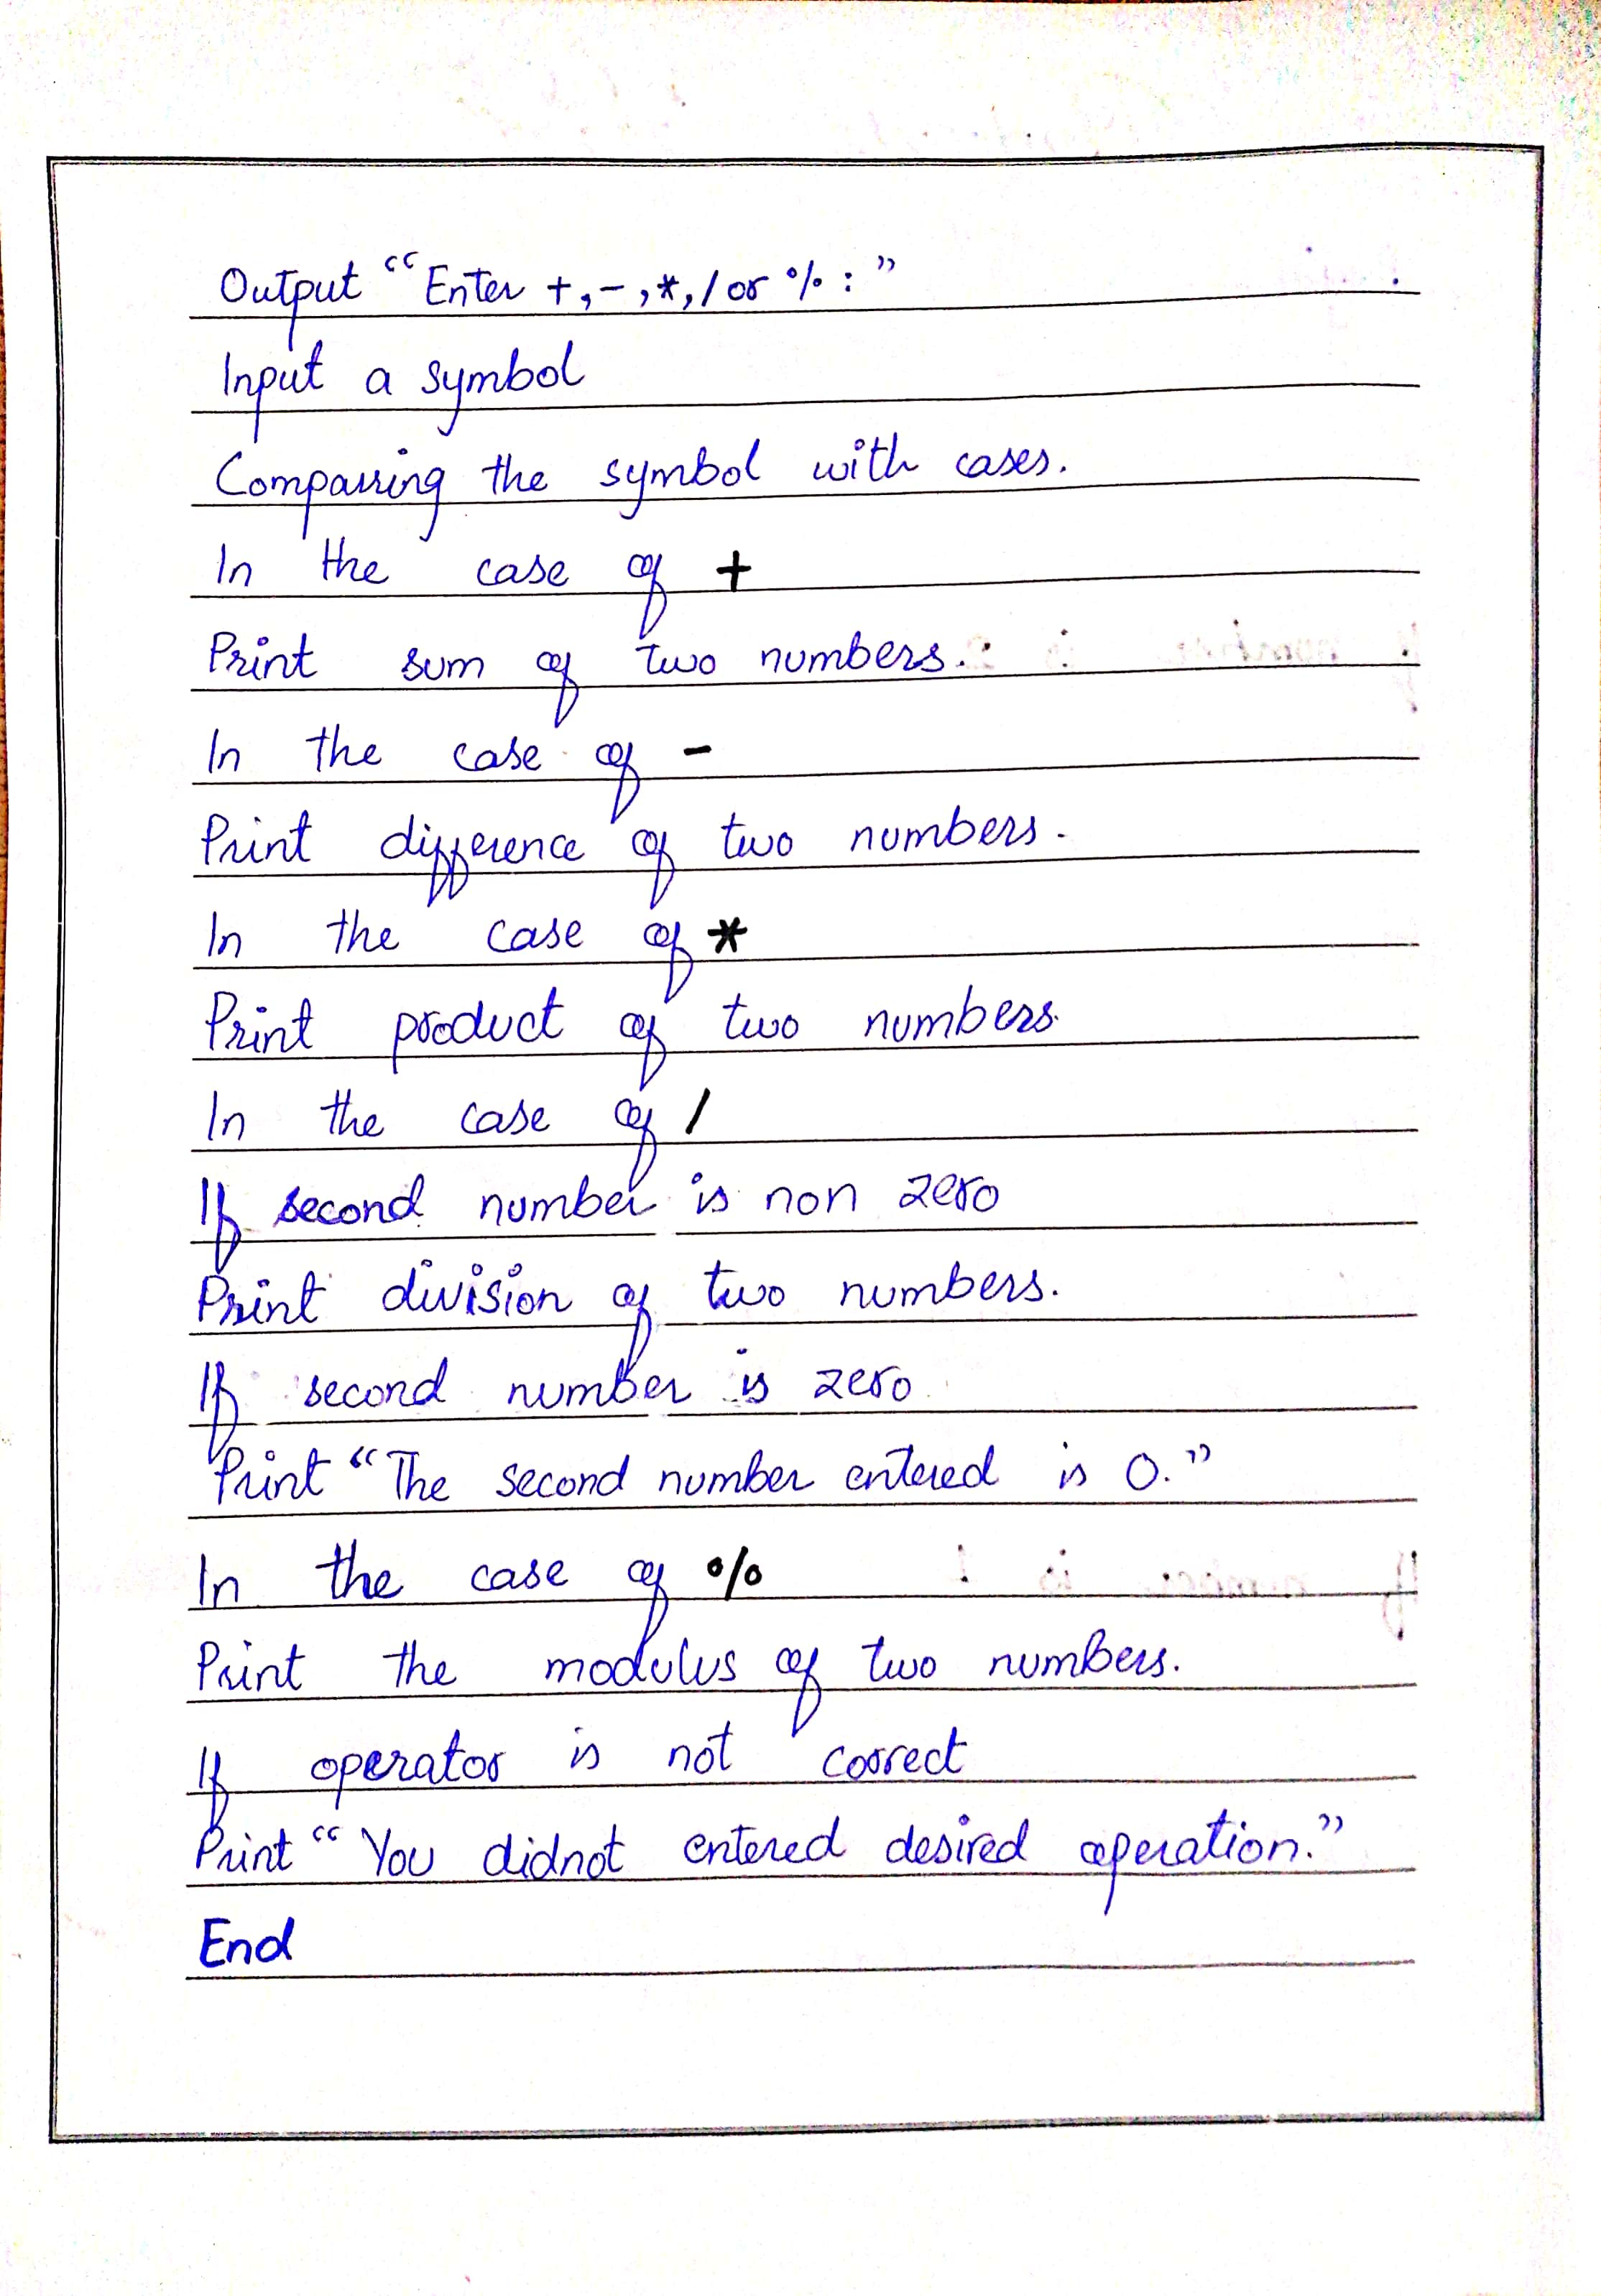 Output “Enter +,-,*,/ or % : ”
Input a symbol
Comparring the symbol with cases.
In the case of +
Print sum of two numbers.
In the case of -
Print difference of two numbers.
In the case of *
Print product of two numbers.
In the case of /
If second number is non zero
Print division of two numbers.
If second number is zero
Print “The second number entered is 0.”
In the case of %
Print the modulus of two numbers.
If operator is not correct
Print “You didnot entered desired operation.”
End